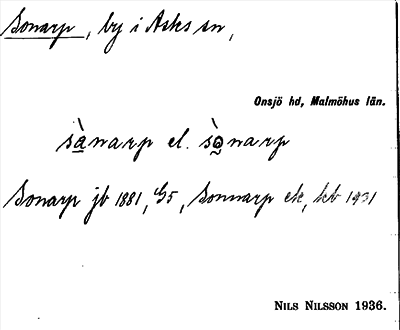 Sonarp, by i Asks sn,
Onsjö hd, Malmöhus län.
sànarp el. sònarp
Sonarp jb 1881, 4/5, Sonnarp ek, kb 1931
NILS NILSSON 1936.